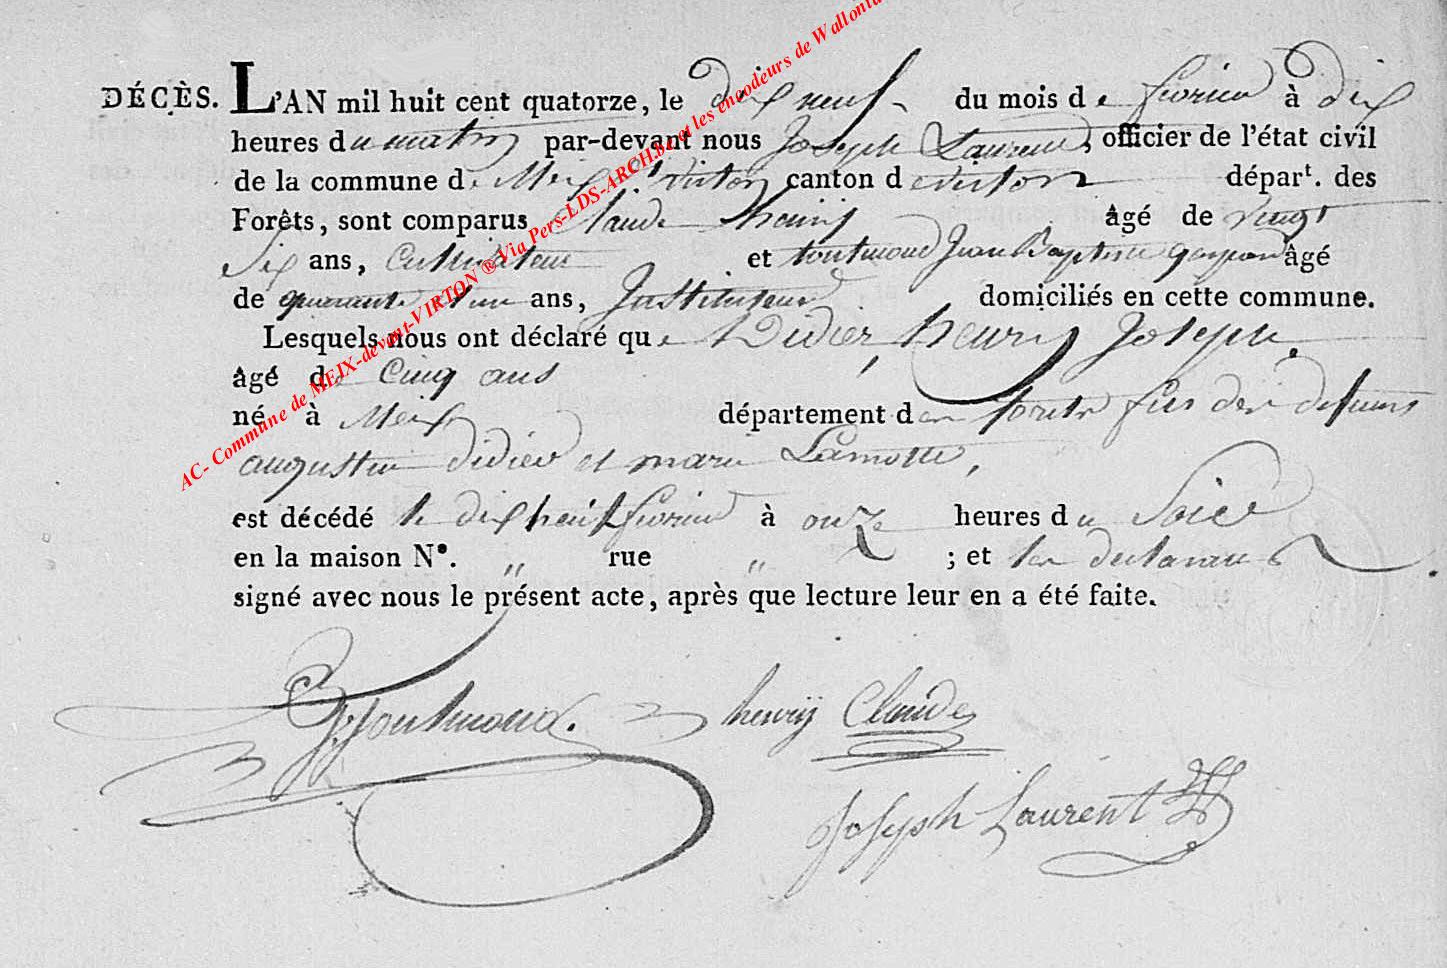 DÉCÈS. L'AN mil huit cent quatorze, le dix neuf du mois de fevrier à dix
heures du matin par-devant nous Joseph Laurent, officier de l'état civil
de la commune de Meix dt virton canton de virton départ. des
Forêts, sont comparus Claude henrij âgé de vingt
Six ans, Cultivateur et toutmond Jean Baptiste gaspard âgé
de quarante et un ans, Instituteur domiciliés en cette commune.
Lesquels nous ont déclaré que Didier, henry Joseph.
âgé de Cinq ans
né à Meix département des forets fils des defunts
augustin didier et marie Lamotte,
est décédé le dix huit fevrier à onze heures du Soir
en la maison N°. " rue " ; et les declarans
signé avec nous le présent acte, après que lecture leur en a été faite.
Toutmond. henrij Claude
Joseph Laurent
AC- Commune de MEIX-devant-VIRTON ® Via Pers-LDS-ARCH.be et les encodeurs de Wallonie